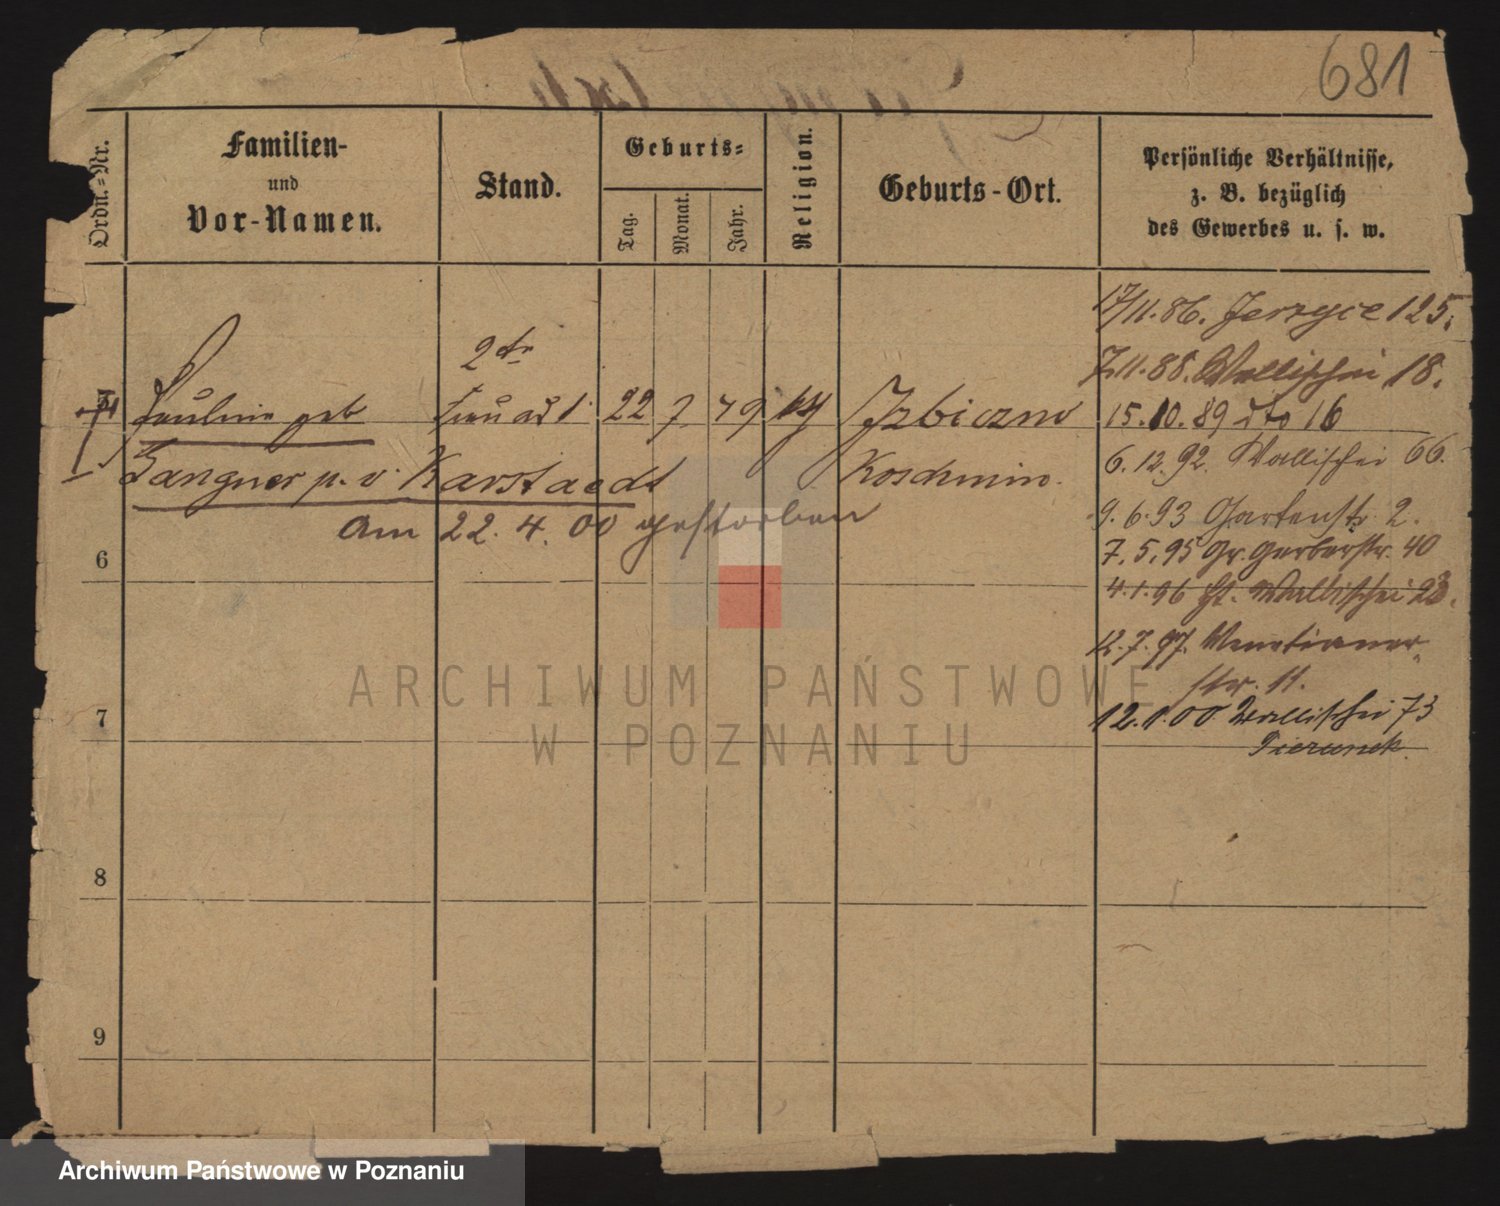 681
Ordn.-Nr.
Familien-
und
Vor-Namen.
Stand.
Geburts-
Tag.
Monat.
Jahr.
Religion.
Geburts-Ort.
Persönliche Verhältnisse,
z. B. bezüglich
des Gewerbes u. s. w.
17/11.86. Jerzyce 125.
7.11.88. Wallischei 18.
2te
Pauline geb Frau ad 1. 22 7. 79 Izbiczno
15.10.89 dto 16
Langner p. v. Karstaedt Koschmin.
6.12.92. Wallischei 66.
am 22.4.00 gestorben
9.6.93 Gartenstr. 2.
6
7.5.95 Gr. Gerberstr. 40
4.1.96 Wallischei 23.
12.7.97. Venetianer-
str. 11.
7
12.1.00 Wallischei 73
Pierunek.
8
9
ARCHIWUM PAŃSTWOWE
W POZNANIU
Archiwum Państwowe w Poznaniu